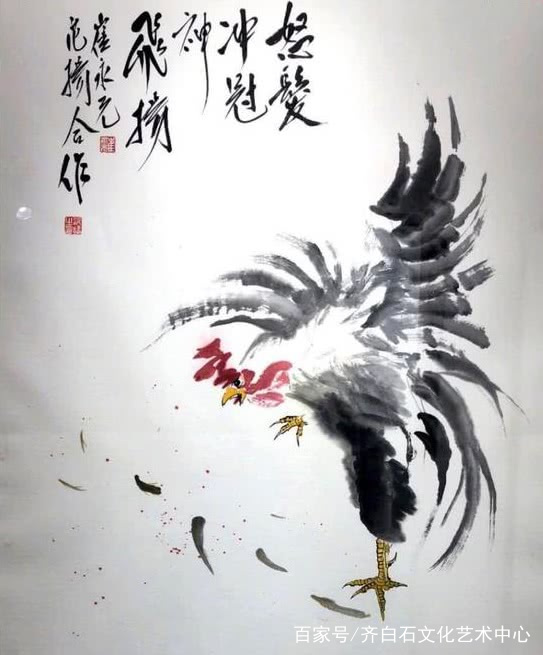 怒髮
冲冠
神
飛揚
崔永元
范揚合作
百家号/齐白石文化艺术中心